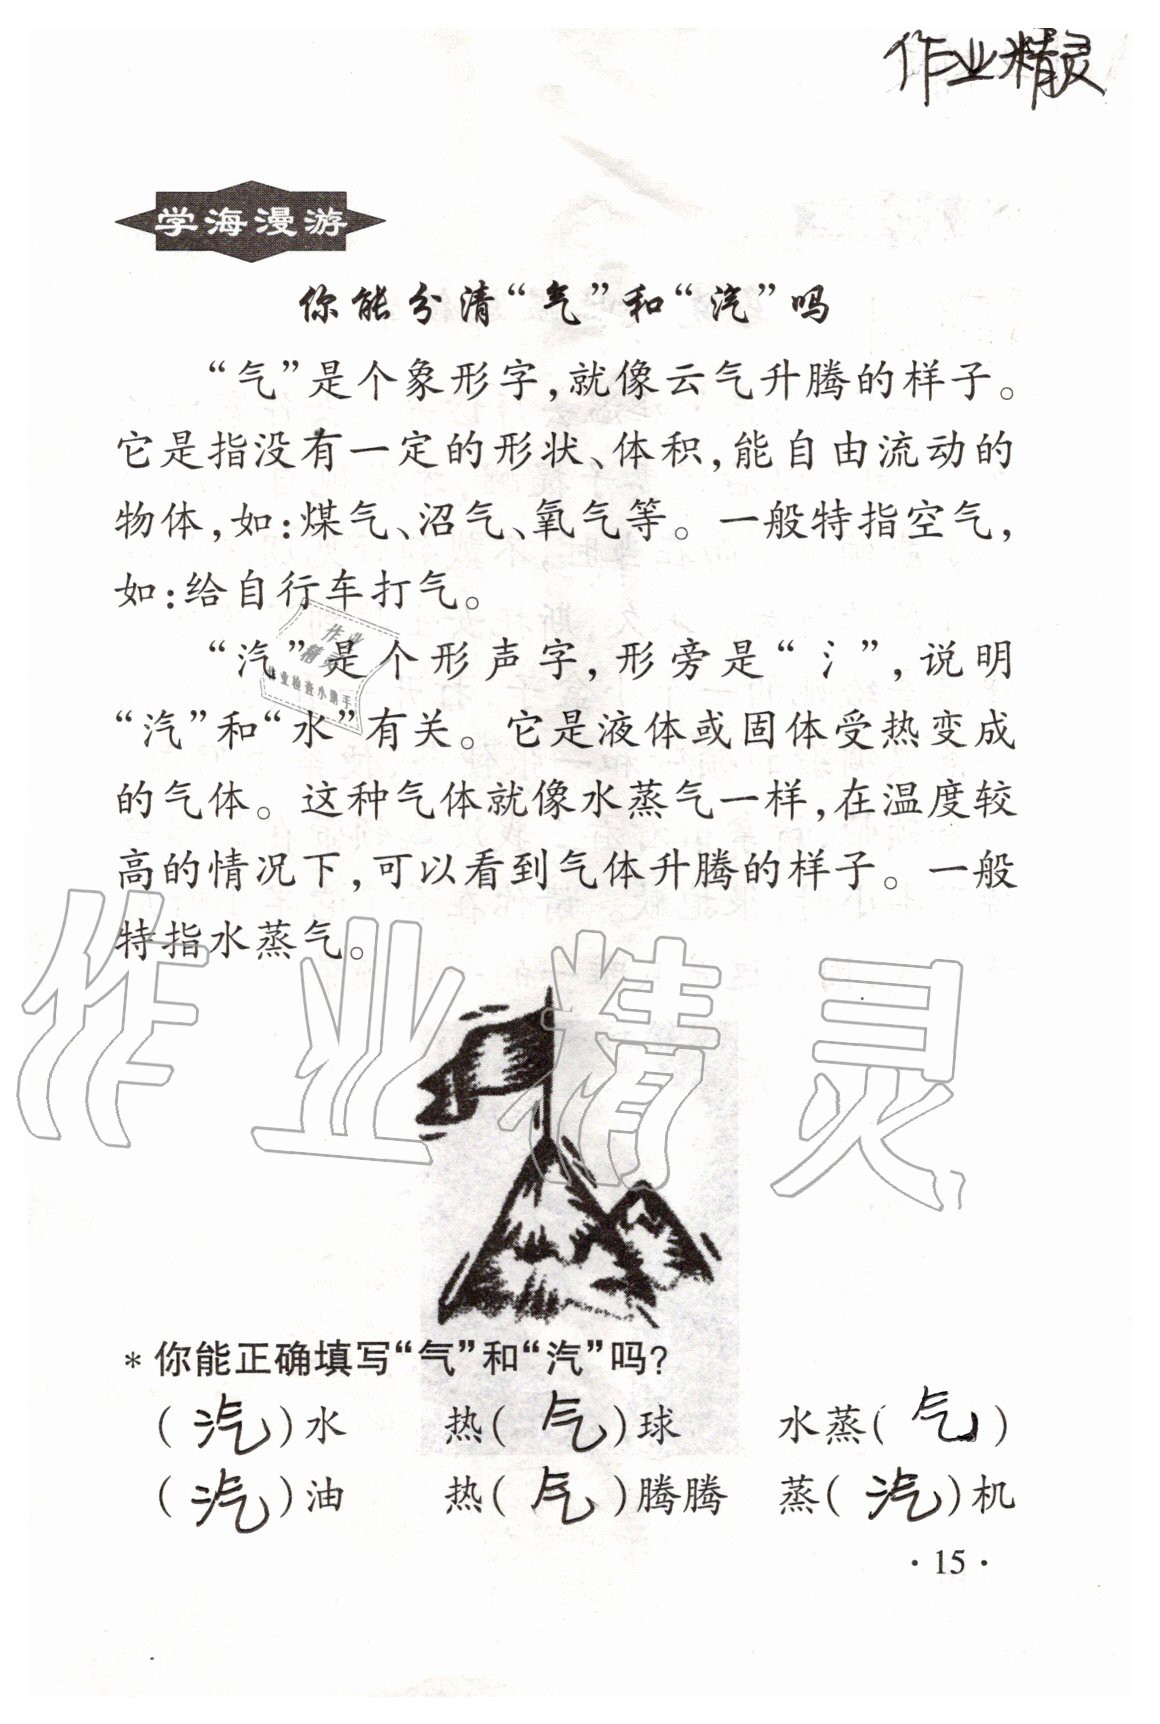 作业精灵
学海漫游
你能分清“气”和“汽”吗
“气”是个象形字，就像云气升腾的样子。
它是指没有一定的形状、体积，能自由流动的
物体，如：煤气、沼气、氧气等。一般特指空气，
如：给自行车打气。
“汽”是个形声字，形旁是“氵”，说明
“汽”和“水”有关。它是液体或固体受热变成
的气体。这种气体就像水蒸气一样，在温度较
高的情况下，可以看到气体升腾的样子。一般
特指水蒸气。
作业
精灵
作业检查小助手
作业精灵
*你能正确填写“气”和“汽”吗？
（汽）水 热（气）球 水蒸（气）
（汽）油 热（气）腾腾 蒸（汽）机
·15·